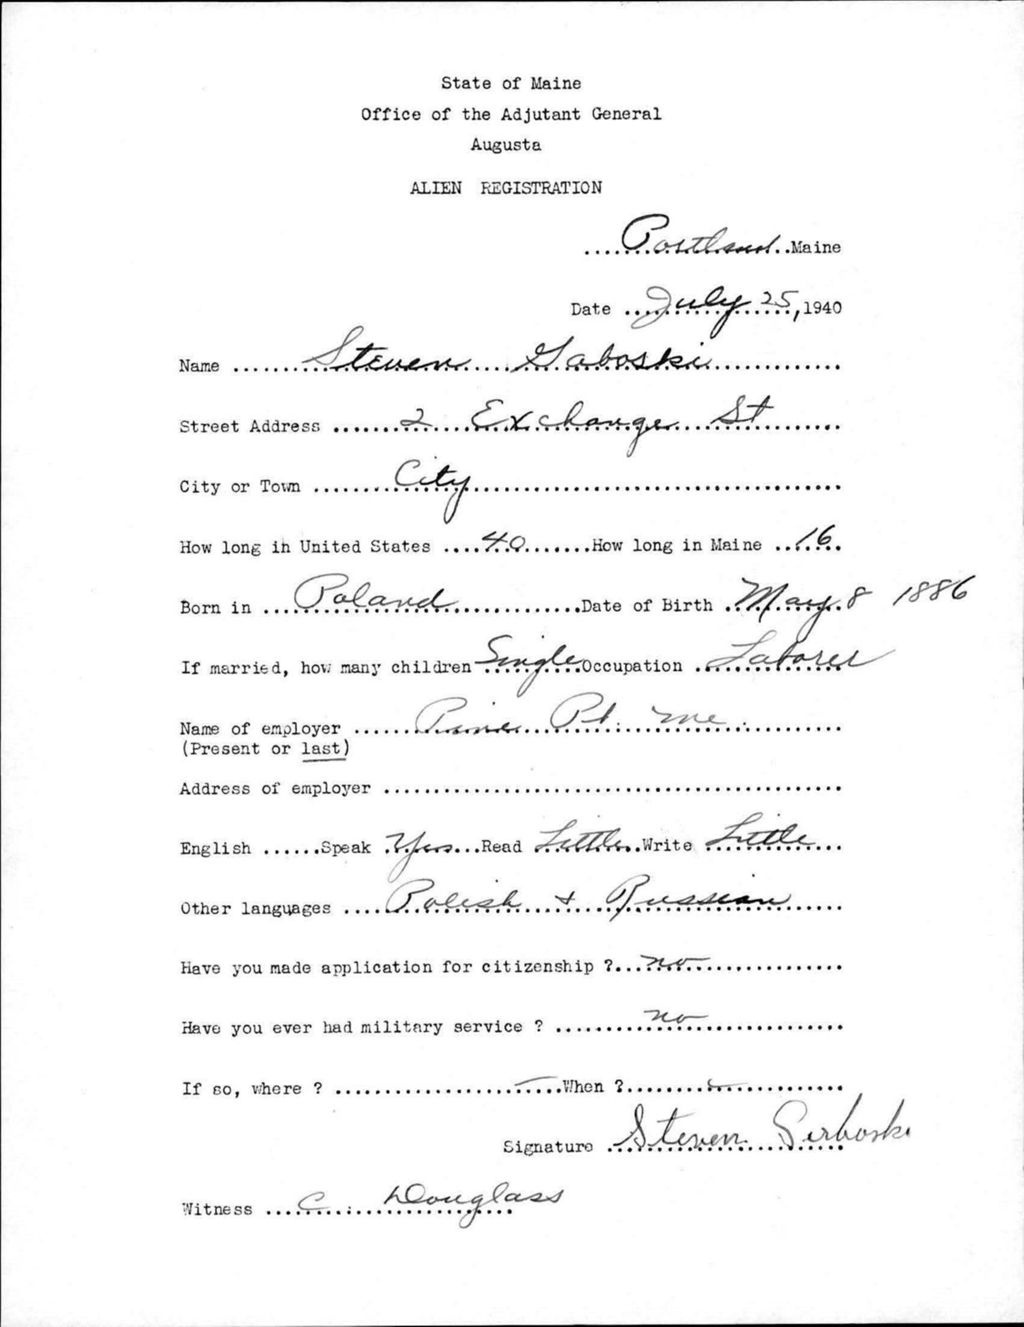 State of Maine
Office of the Adjutant General
Augusta
ALIEN REGISTRATION
....Portland..Maine
Date ..July 25,1940
Name ........Steven....Gaboski............
Street Address .......2....Exchange....St........
City or Town ........City....................................
How long in United States ....40.......How long in Maine ..16.
Born in ...Poland..............Date of Birth .May 8 1886
If married, how many children Single Occupation ..Laborer
Name of employer ......Pine Pt. Me...........
(Present or last)
Address of employer ..............................................
English ......Speak .Yes...Read Little..Write Little...
Other languages ....Polish + Russian......
Have you made application for citizenship ?...no................
Have you ever had military service ? .........no................
If so, where ? ...................—...When ?........—.............
Signature Steven
Witness ....C. Douglass